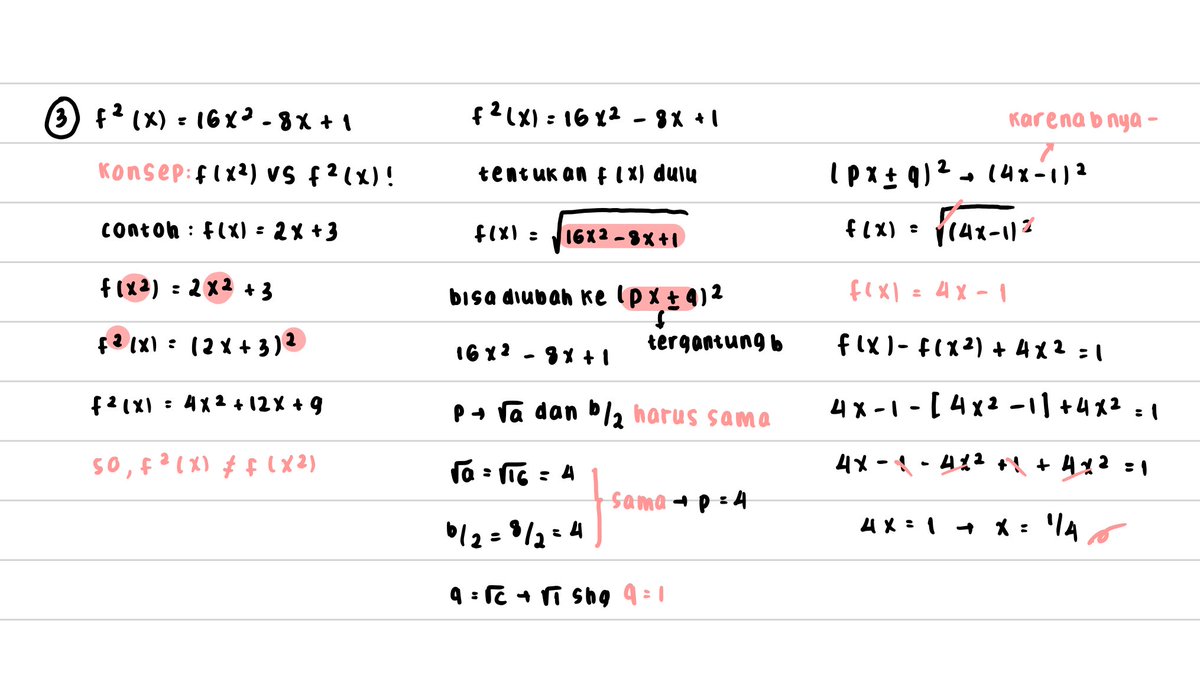 ③ f²(x) = 16x² - 8x + 1
Konsep: f(x²) vs f²(x)!
contoh : f(x) = 2x + 3
f(x²) = 2x² + 3
f²(x) = (2x + 3)²
f²(x) = 4x² + 12x + 9
so, f²(x) ≠ f(x²)
f²(x) = 16x² - 8x + 1
tentukan f(x) dulu
f(x) = √(16x² - 8x + 1)
bisa diubah ke (px ± q)²
↓
tergantung b
16x² - 8x + 1
p → √a dan b/2 harus sama
√a = √16 = 4
sama → p = 4
b/2 = 8/2 = 4
q = √c → √1 shg q = 1
karena bnya -
(px ± q)² → (4x - 1)²
f(x) = √(4x - 1)²
f(x) = 4x - 1
f(x) - f(x²) + 4x² = 1
4x - 1 - [4x² - 1] + 4x² = 1
4x - 1 - 4x² + 1 + 4x² = 1
4x = 1 → x = 1/4